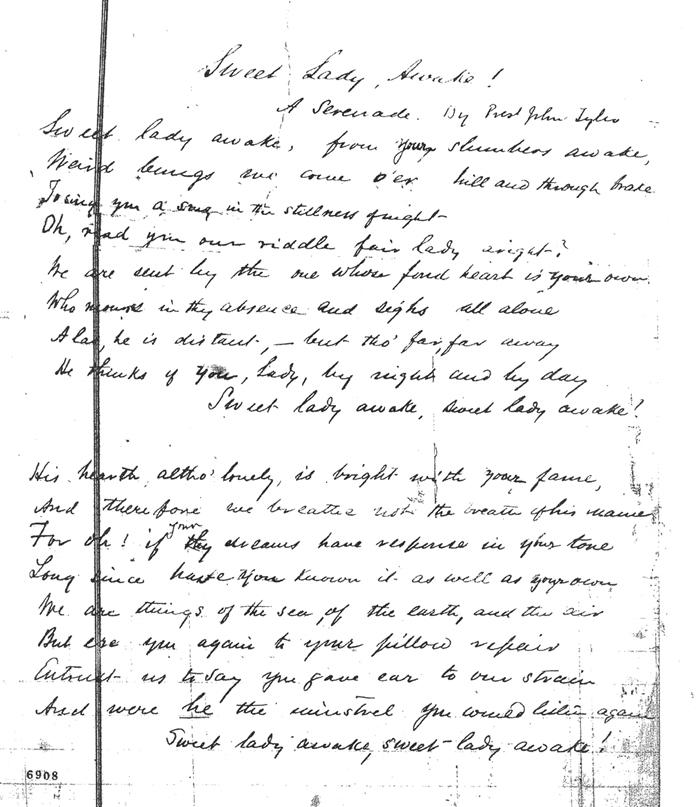 Sweet Lady, Awake!
A Serenade. By Prest John Tyler
Sweet lady awake, from your slumbers awake,
Weird beings we come o'er hill and through brake
To sing you a song in the stillness of night
Oh, read you our riddle fair lady aright?
We are sent by the one whose fond heart is your own
Who mourns in thy absence and sighs all alone
Alas, he is distant, — but tho' far, far away
He thinks of you, Lady, by night and by day
Sweet lady awake, sweet lady awake!
His hearth, altho' lonely, is bright with your fame,
And therefore we breathe not the breath of his name
For oh! if your dreams have response in your tone
Long since have you known it as well as your own
We are things of the sea, of the earth, and the air
But ere you again to your pillow repair
Entrust us to say you gave ear to our strain
And were he the minstrel you would listen again
Sweet lady awake, sweet lady awake!
6908